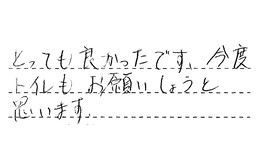 とっても良かったです。今度
トイレもお願いしようと
思います。